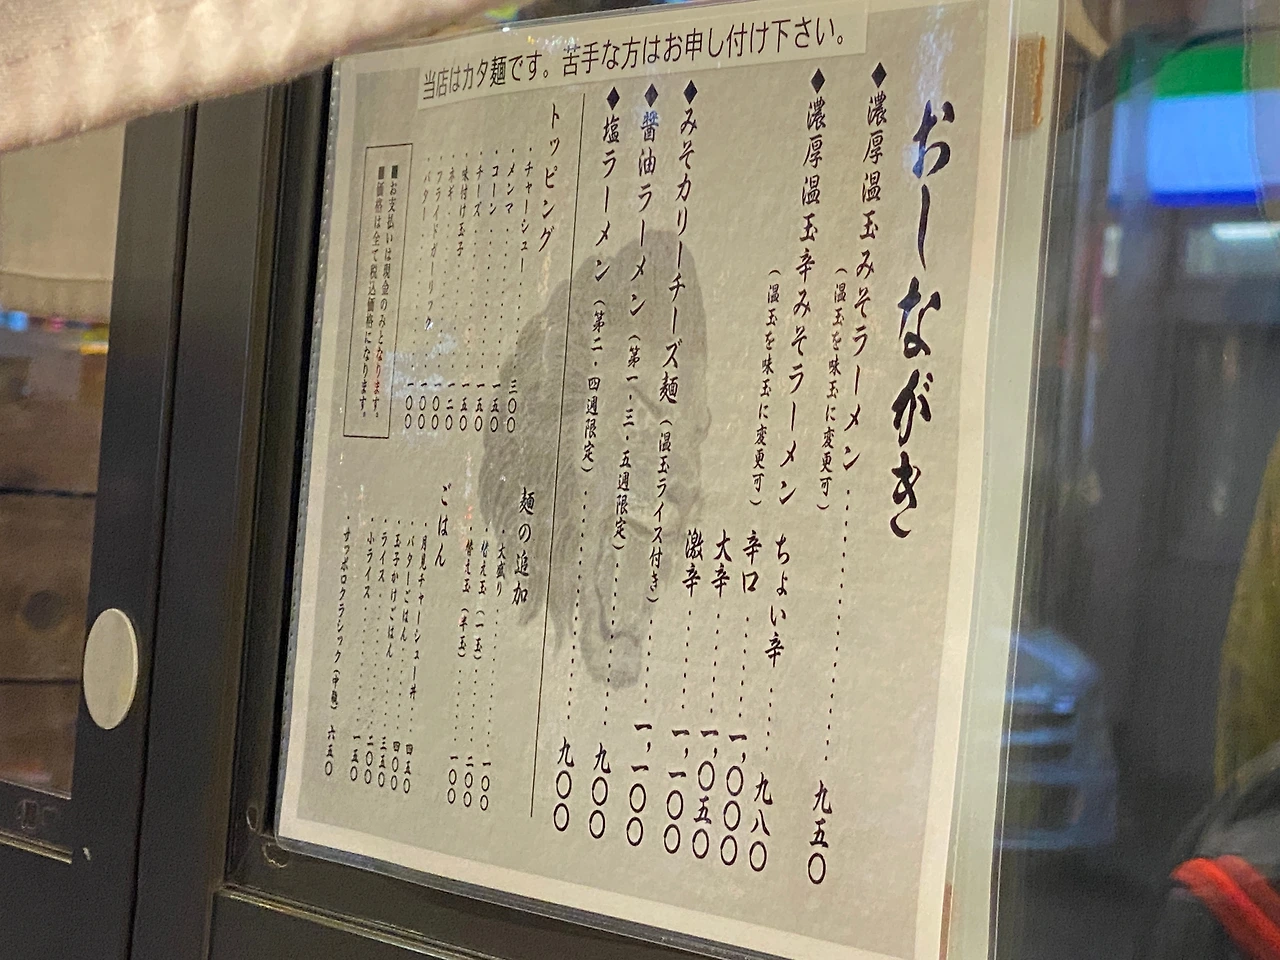 当店はカタ麺です。苦手な方はお申し付け下さい。
おしながき
◆濃厚温玉みそラーメン………九五〇
（温玉を味玉に変更可）
◆濃厚温玉辛みそラーメン
（温玉を味玉に変更可）
ちょい辛………九八〇
辛口………一,〇〇〇
大辛………一,〇五〇
激辛………一,一〇〇
◆みそカリーチーズ麺（温玉ライス付き）………一,一〇〇
◆醤油ラーメン（第一・三・五週限定）………九〇〇
◆塩ラーメン（第二・四週限定）………九〇〇
トッピング
・チャーシュー………三〇〇
・メンマ………一五〇
・コーン………一五〇
・チーズ………一五〇
・味付け玉子………一二〇
・ネギ………一〇〇
・フライドガーリック………一〇〇
・バター………一〇〇
麺の追加
・大盛り………一〇〇
・替え玉（一玉）………二〇〇
・替え玉（半玉）………一〇〇
ごはん
・月見チャーシュー丼………四五〇
・バターごはん………四〇〇
・玉子かけごはん………三五〇
・ライス………二〇〇
・小ライス………一五〇
・サッポロクラシック（中瓶）六五〇
■お支払いは現金のみとなります。
■価格は全て税込価格になります。